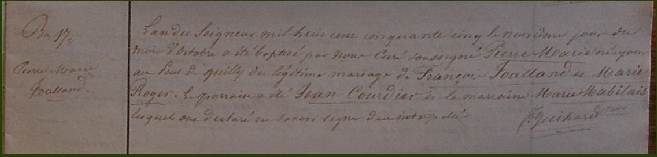 Bn 17e
Pierre Marie
Jaalland.
L'an du Seigneur mil huit cent cinquante cinq le neuvième jour du
mois d'Octobre a été baptisé par nous Curé soussigné Pierre Marie né ce jour
au bas de quilly du légitime mariage de François Jaalland et Marie
Roger. Le parrain a été Jean Courdier et la marraine Marie Mabilais
lesquels ont déclaré ne savoir signer de ce interpelés
Guihard